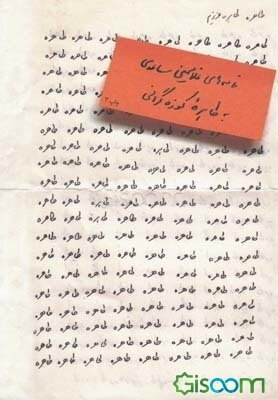 طاهره، طاهره عزیزم
طاهره طاهره طاهره طاهره طاهره طاهره طاهره طاهره
طاهره طاهره
نامه‌های غلامحسین ساعدی
طاهره طاهره
به طاهره کوزه‌گرانی
طاهره طاهره
چاپ ۲
طاهره طاهره
طاهره طاهره طاهره طاهره طاهره طاهره طاهره طاهره
طاهره طاهره طاهره طاهره طاهره طاهره طاهره طاهره
طاهره طاهره طاهره طاهره طاهره طاهره طاهره طاهره
طاهره طاهره طاهره طاهره طاهره طاهره طاهره طاهره
طاهره طاهره طاهره طاهره طاهره طاهره طاهره طاهره
طاهره طاهره طاهره طاهره طاهره طاهره طاهره طاهره
طاهره طاهره طاهره طاهره طاهره طاهره طاهره طاهره
طاهره طاهره طاهره طاهره طاهره طاهره طاهره طاهره
طاهره طاهره طاهره طاهره طاهره طاهره طاهره طاهره
طاهره طاهره طاهره طاهره طاهره طاهره طاهره طاهره
طاهره طاهره طاهره طاهره طاهره طاهره طاهره طاهره
طاهره طاهره طاهره طاهره طاهره طاهره طاهره طاهره
طاهره طاهره طاهره طاهره طاهره طاهره طاهره طاهره
Gisoom
.com